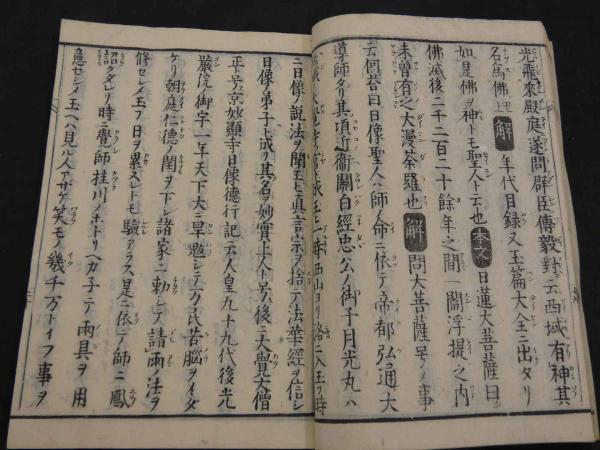 光飛來殿庭遂問群臣傅毅對云西域有神其
名爲佛上 解 年代目録又玉篇大全ニ出タリ
如是佛ヲ神トモ聖人ト云也 本文 日蓮大菩薩曰
佛滅後二千二百二十餘年之間一閻浮提之内
未曾有之大漫荼羅也 解 問大菩薩号ノ事
云何答曰日像聖人ハ師ノ命ニ依テ帝都弘通大
導師タリ其項近衞關白經忠公ノ御子月光丸ハ
一時西山ヨリ洛ニ入玉フ時
ニ日像ノ説法ヲ聞玉ヒ眞言宗ヲ捨テ法華經ヲ信シ
日像ノ弟子ト成リ其名ヲ妙實上人ト号ス後ニ大覺大僧
正ト号ス京妙顯寺日像德行記云人皇九十九代後光
嚴院御宇一年天下大ニ旱魃シテ万民苦腦ヲイダ
ケリ朝庭仁德ノ閨ヲ下シ諸家ニ勅シテ請雨法ヲ
修セシメ玉フ日ヲ累スレトモ驗アラス是ニ依テ師ニ鳳
詔クタレリ時ニ覺師桂川ノホトリヘ力子テ雨具ヲ用
意セシメ玉ヘハ見ル人アザケ笑モノ幾千万トイフ事ヲ